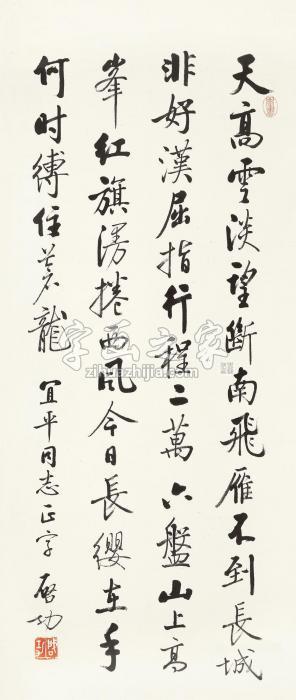 天高雲淡望斷南飛雁不到長城
非好漢屈指行程二萬六盤山上高
峯紅旗漫捲西風今日長纓在手
何时縛住蒼龍 宜平同志正字 啓功
字画之家
zihuazhijia.com